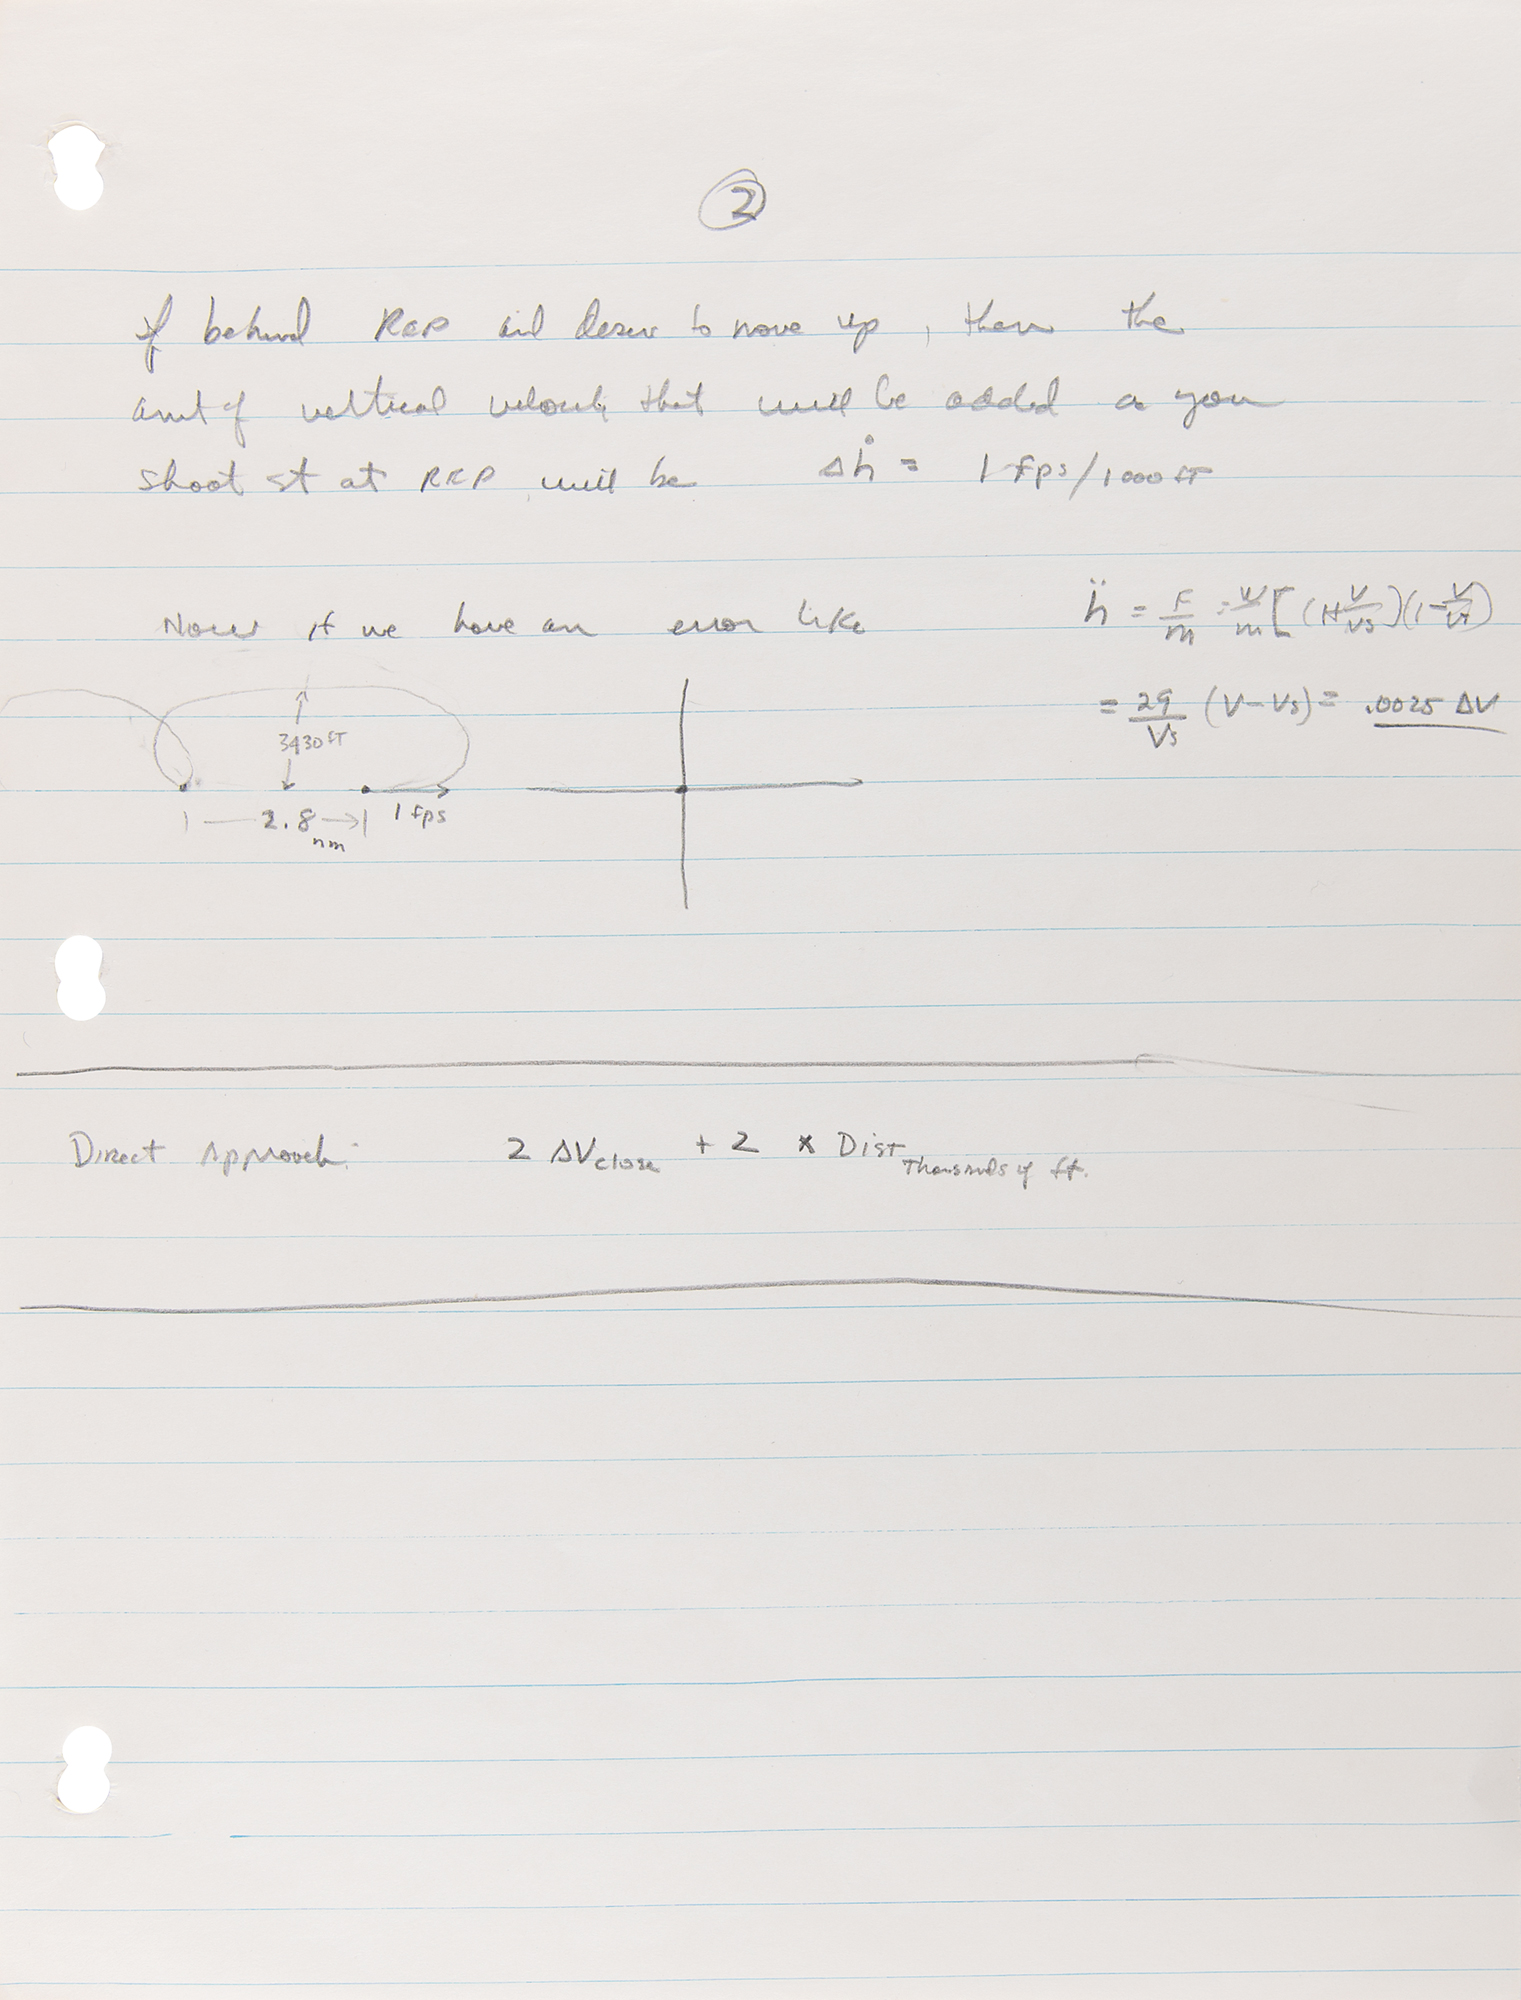 2
if behind REP and desire to move up, then the
amt of vertical velocity that will be added as you
shoot st at REP will be Δḣ = 1 fps/1000 FT
Now if we have an error like
ḧ = F/m = W/m [(1+V/Vs)(1-V/Vs)
= 2g/Vs (V-Vs) = .0025 ΔV
3430 FT
2.8 nm
1 fps
Direct Approach: 2 ΔVclose + 2 x Dist Thousands of ft.